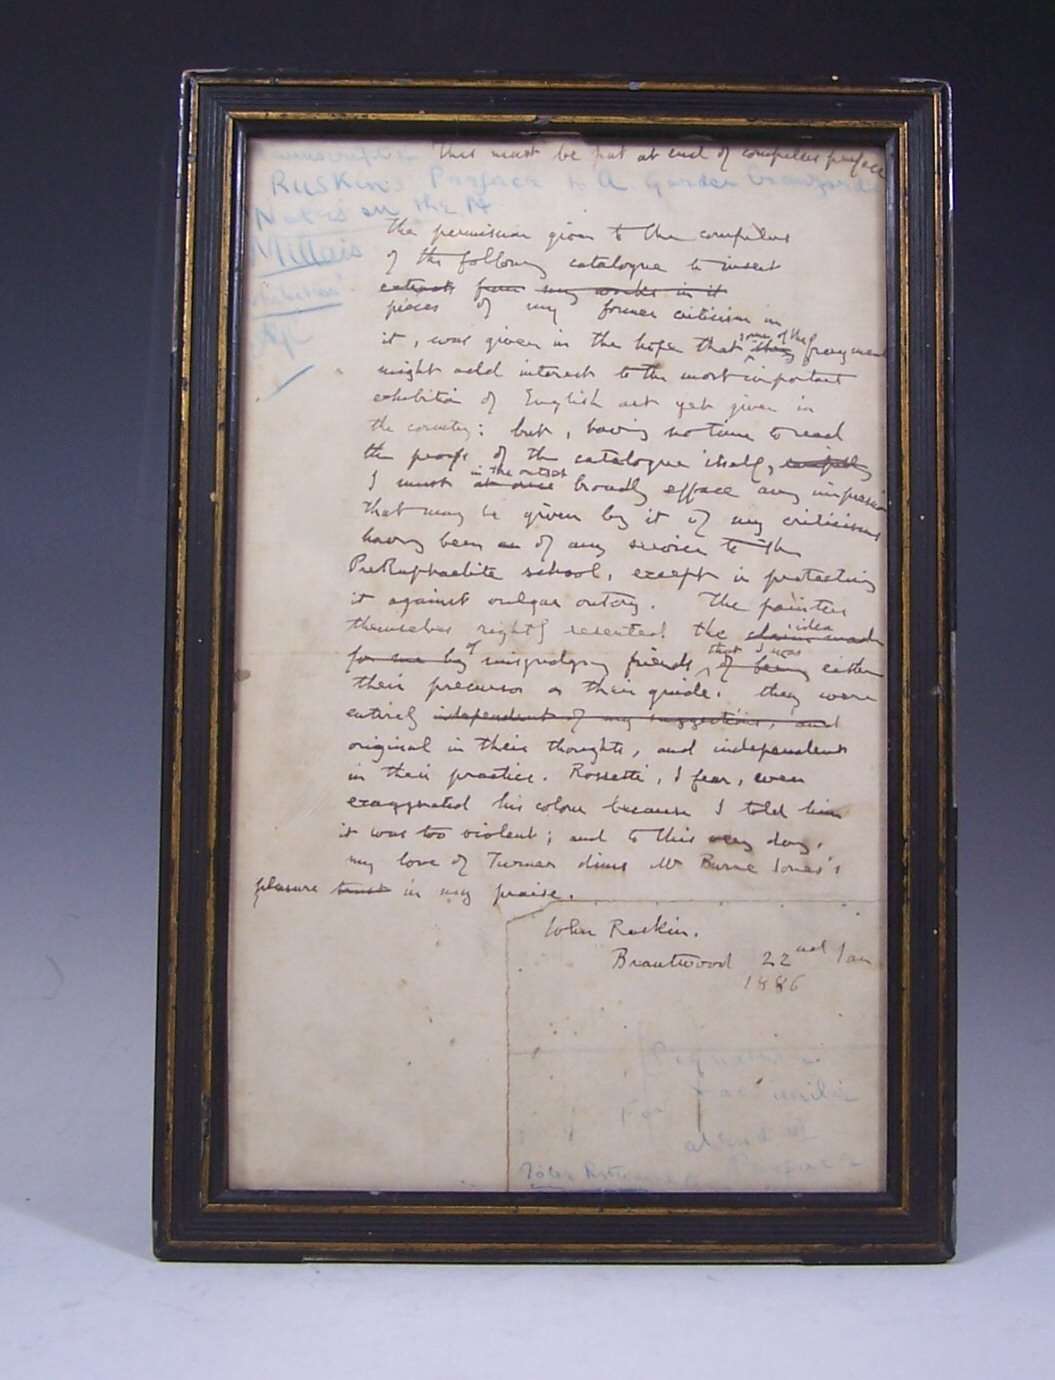 This must be put at end of compilers preface
Ruskin's Preface to A. Gordon Crawford's
Notes on the
Millais
The permission given to the compilers
of the following catalogue to insert
extracts from my works in it
pieces of my former criticism in
it, was given in the hope that some of the these fragments
might add interest to the most important
exhibition of English art yet given in
the country: but, having no time to read
the proofs of the catalogue itself, carefully
I must in the outset at once broadly efface any impression
that may be given by it of my criticisms
having been of any service to the
PreRaphaelite school, except in protecting
it against vulgar outcry. The painters
themselves rightly resented the idea claim made
for me by of misjudging friends, that I was of being either
their precursor or their guide. they were
entirely independent of my suggestions, and
original in their thoughts, and independent
in their practice. Rossetti, I fear, even
exaggerated his colour because I told him
it was too violent; and to this very day,
my love of Turner dims Mr Burne Jones's
pleasure trust in my praise.
John Ruskin.
Brantwood 22nd Jan
1886
Signature
facsimile
For
at end of
Preface
John Ruskin